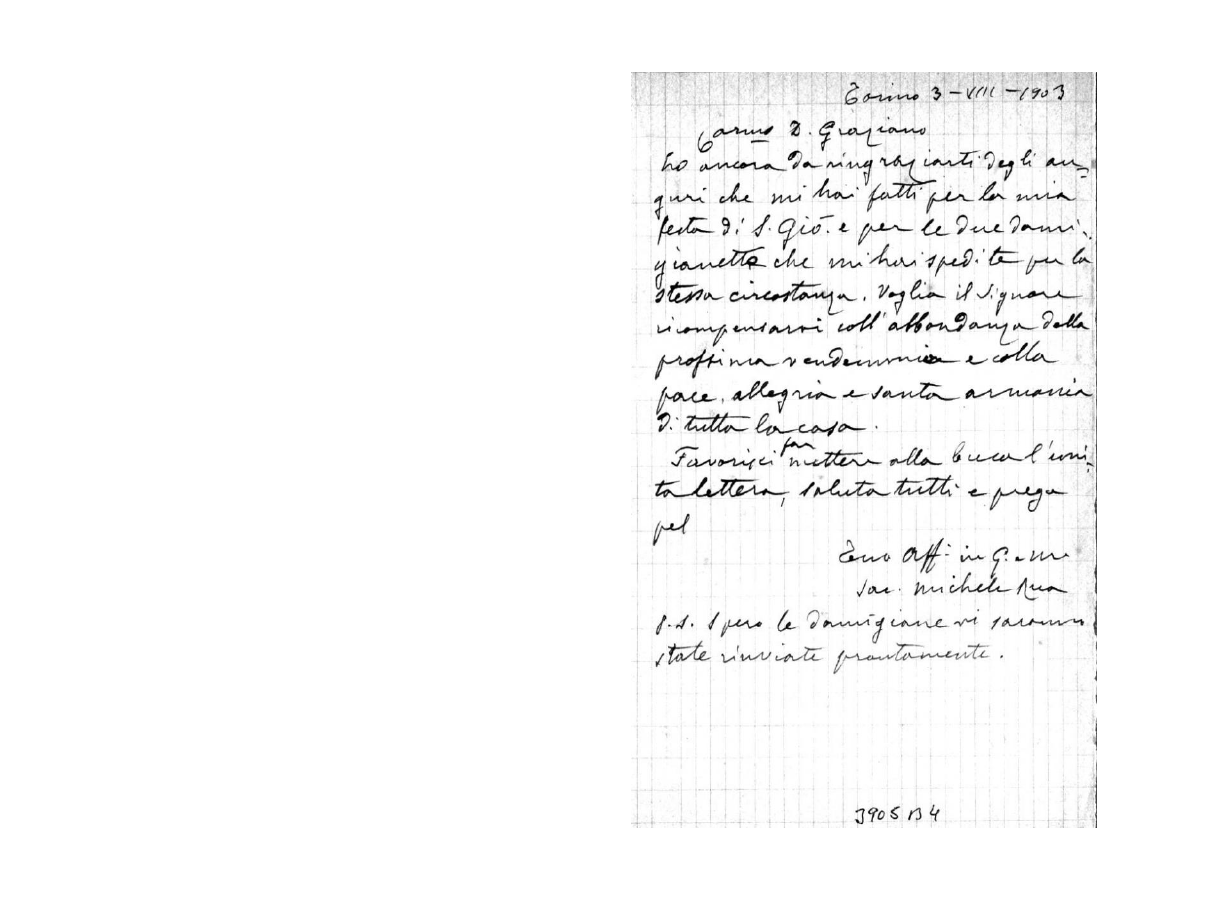 Torino 3-VIII-1903
Carmo D. Graziano
ho ancora da ringraziarti degli au=
guri che mi hai fatti per la mia
festa di S. Gio. e per le due dami-
gianette che mi hai spedite per la
stessa circostanza. Voglia il Signore
ricompensarvi coll'abbondanza della
prossima vendemmia e colla
pace, allegria e santa armonia
di tutta la casa.
Favorisci far mettere alla buca l'uni-
ta lettera, saluta tutti e prega
pel
Tuo aff. in G. e M.
Sac. Michele Rua
P.S. Spero le damigiane vi saranno
state rinviate prontamente.
3905 B 4